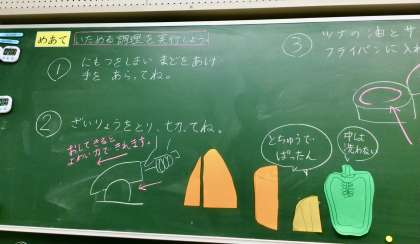 めあて いためる調理を実行しよう。
① にもつをしまい まどをあけ
手を あらってね。
② ざいりょうをとり、切ってね。
おしてきると
よわい力できれます。
とちゅうで
ぱったん
中は
洗わない
③ ツナの油とサ
フライパンに入れ